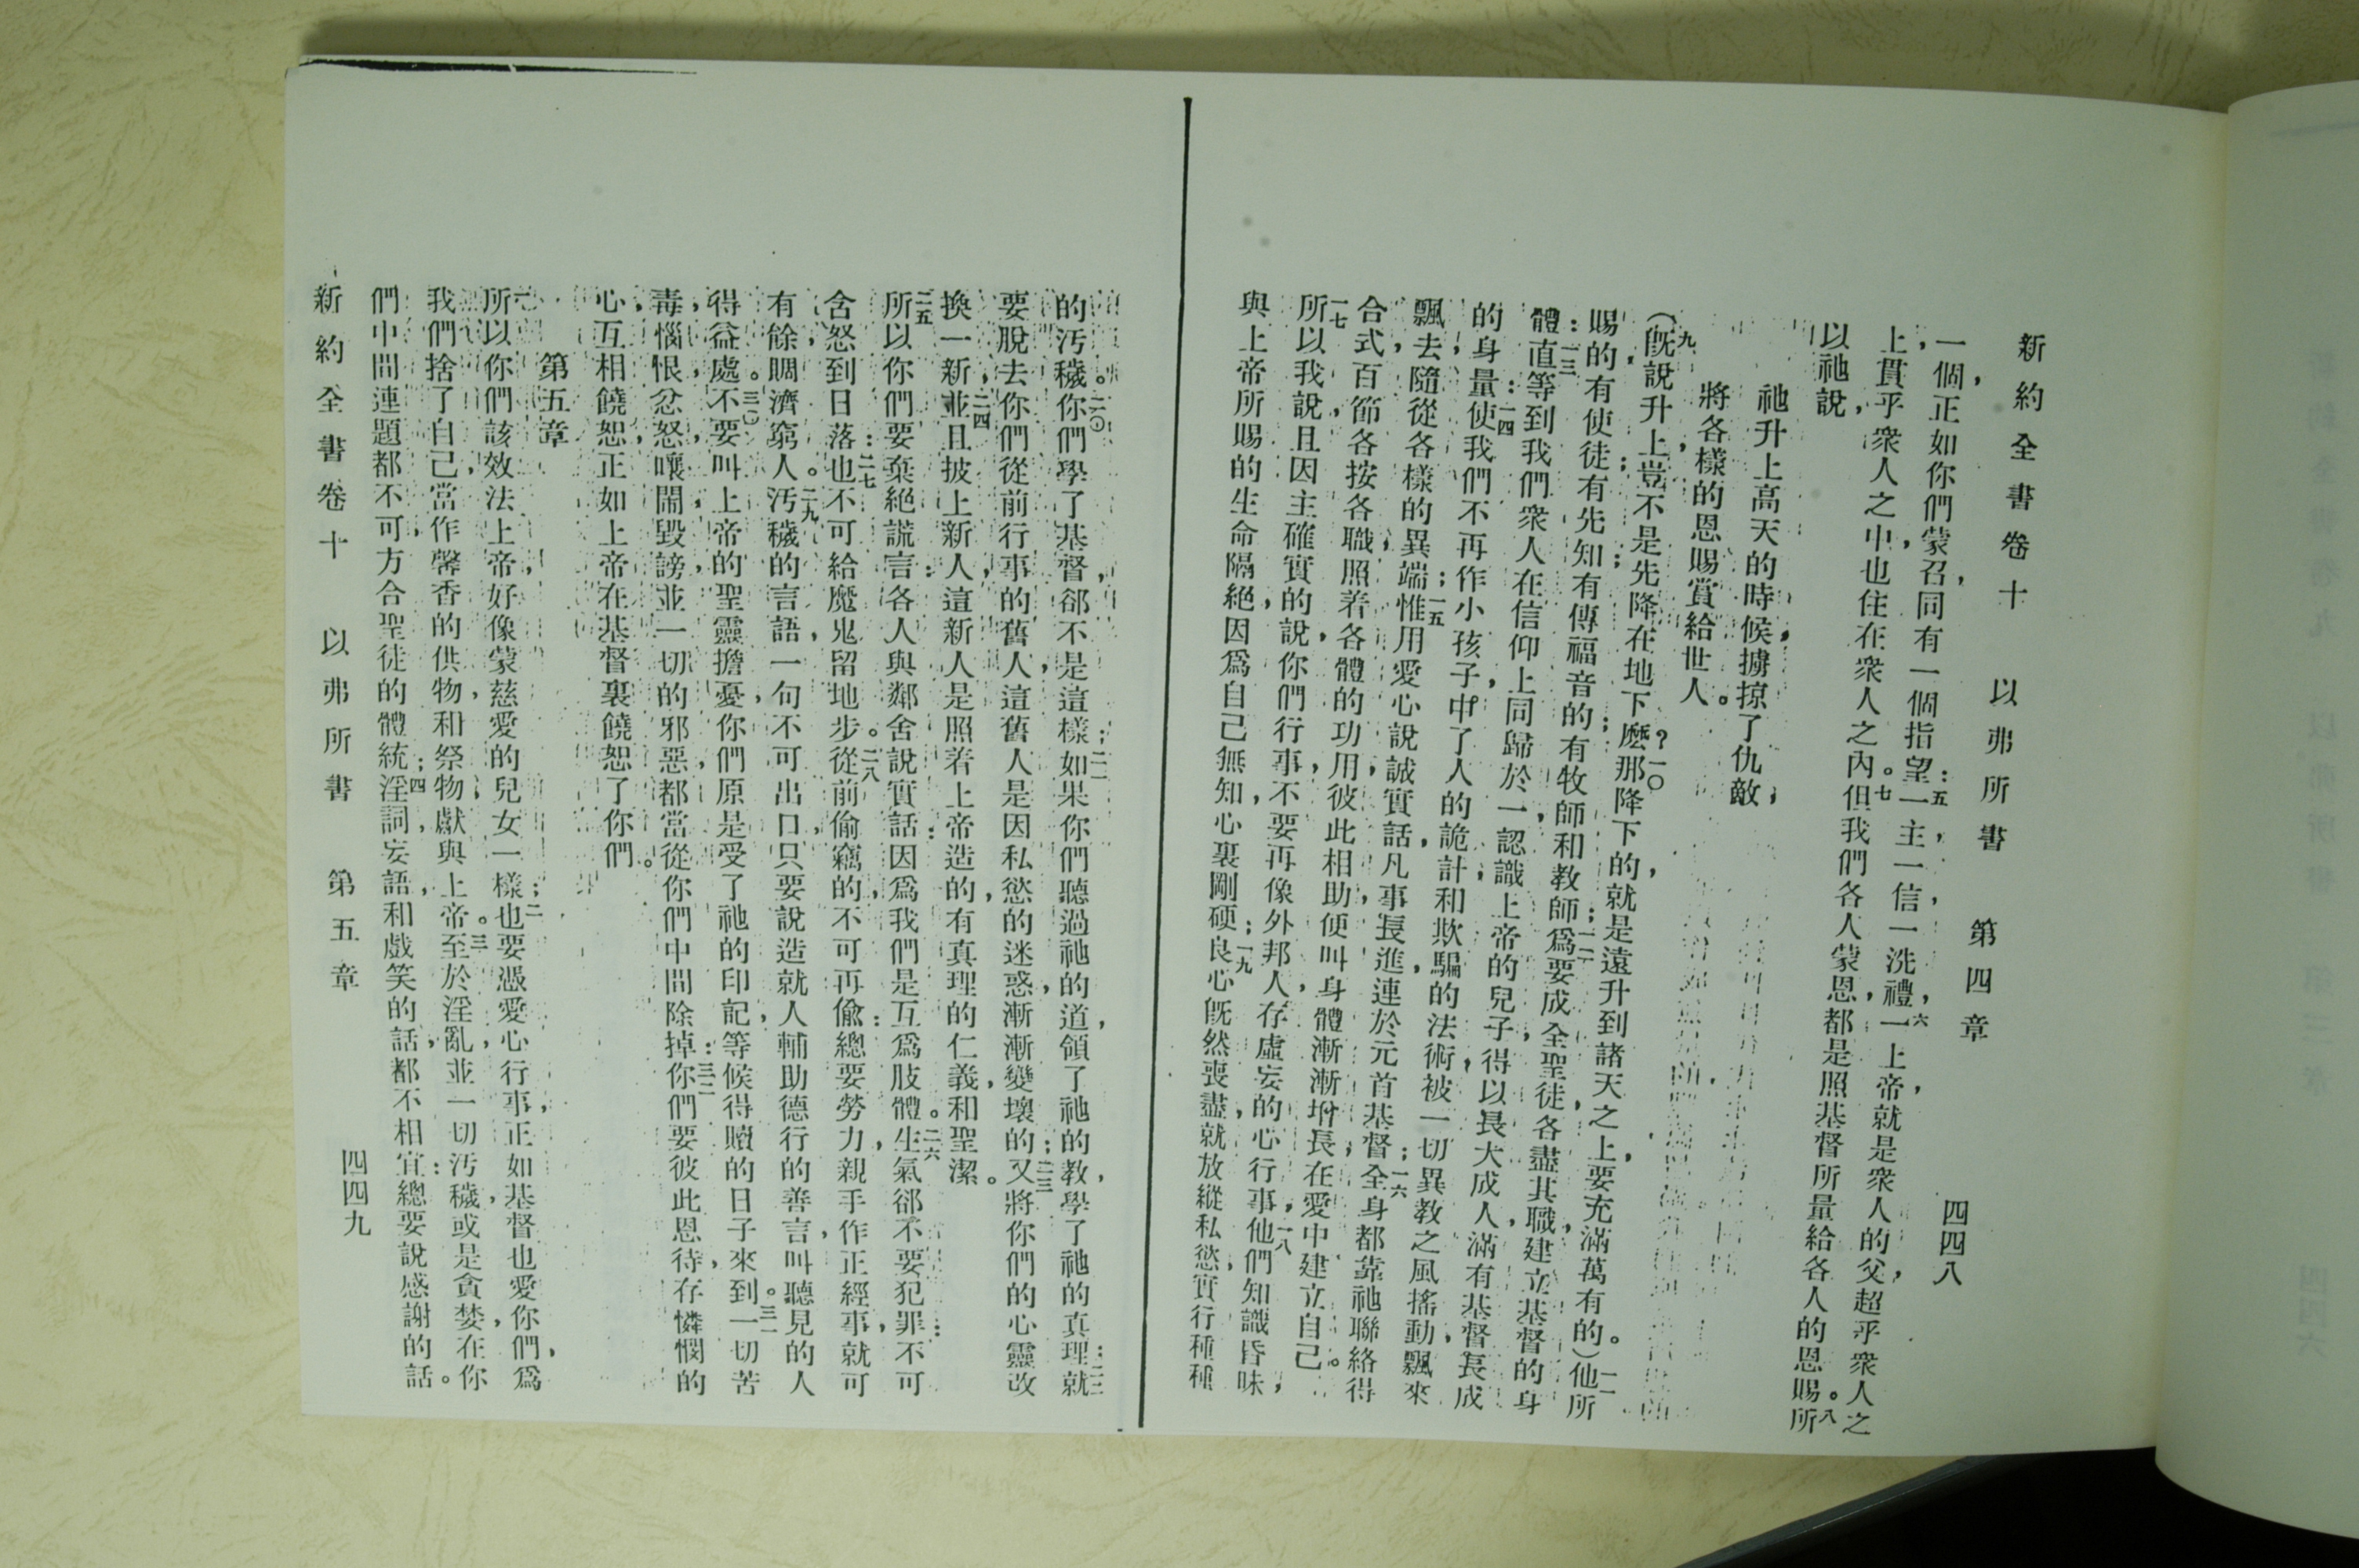 新約全書卷十　以弗所書　第四章　四四八
一個，正如你們蒙召，同有一個指望：五一主，一信，一洗禮，六一上帝，就是衆人的父，超乎衆人之
上，貫乎衆人之中，也住在衆人之內。七但我們各人蒙恩，都是照基督所量給各人的恩賜。八所
以祂說，
祂升上高天的時候，擄掠了仇敵，
將各樣的恩賜賞給世人。
九（旣說升上，豈不是先降在地下麼？一〇那降下的，就是遠升到諸天之上，要充滿萬有的。）一一他所
賜的，有使徒；有先知；有傳福音的；有牧師和教師；一二爲要成全聖徒，各盡其職，建立基督的身
體：一三直等到我們衆人在信仰上同歸於一，認識上帝的兒子，得以長大成人，滿有基督長成
的身量：一四使我們不再作小孩子，中了人的詭計，和欺騙的法術，被一切異教之風搖動，飄來
飄去，隨從各樣的異端；一五惟用愛心說誠實話，凡事長進，連於元首基督；一六全身都靠祂聯絡得
合式，百節各按各職，照着各體的功用，彼此相助，便叫身體漸漸增長，在愛中建立自己。
一七所以我說，且因主確實的說，你們行事，不要再像外邦人，存虛妄的心行事，一八他們知識昏昧，
與上帝所賜的生命隔絕，因爲自己無知，心裏剛硬；一九良心旣然喪盡，就放縱私慾，實行種種
的汚穢。二〇你們學了基督，卻不是這樣；二一如果你們聽過祂的道，領了祂的教，學了祂的真理：二二就
要脫去你們從前行事的舊人，這舊人是因私慾的迷惑，漸漸變壞的；二三又將你們的心靈改
換一新，二四並且披上新人，這新人是照着上帝造的，有真理的仁義，和聖潔。
二五所以你們要棄絕謊言，各人與鄰舍說實話：因爲我們是互爲肢體。二六生氣卻不要犯罪：不可
含怒到日落：二七也不可給魔鬼留地步。二八從前偷竊的，不可再偸：總要勞力，親手作正經事，就可
有餘，賙濟窮人。二九汚穢的言語，一句不可出口，只要說造就人輔助德行的善言，叫聽見的人
得益處。三〇不要叫上帝的聖靈擔憂，你們原是受了祂的印記，等候得贖的日子來到。三一一切苦
毒，惱恨，忿怒，嚷鬧，毀謗，並一切的邪惡，都當從你們中間除掉：三二你們要彼此恩待，存憐憫的
心，互相饒恕，正如上帝在基督裏饒恕了你們。
第五章
一所以你們該效法上帝，好像蒙慈愛的兒女一樣；二也要憑愛心行事，正如基督也愛你們，爲
我們捨了自己，當作馨香的供物，和祭物，獻與上帝。三至於淫亂，並一切汚穢，或是貪婪，在你
們中間連題都不可，方合聖徒的體統；四淫詞，妄語，和戲笑的話，都不相宜：總要說感謝的話。
新約全書卷十　以弗所書　第五章　四四九